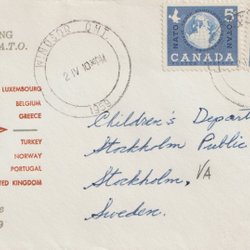 NG
A.T.O.
WINDSOR ONT.
2 IV 10 30 AM
1959
NATO
5
OTAN
CANADA
LUXEMBOURG
BELGIUM
GREECE
TURKEY
NORWAY
PORTUGAL
UNITED KINGDOM
Children's Depart
Stockholm Public
Stockholm, VA
Sweden.